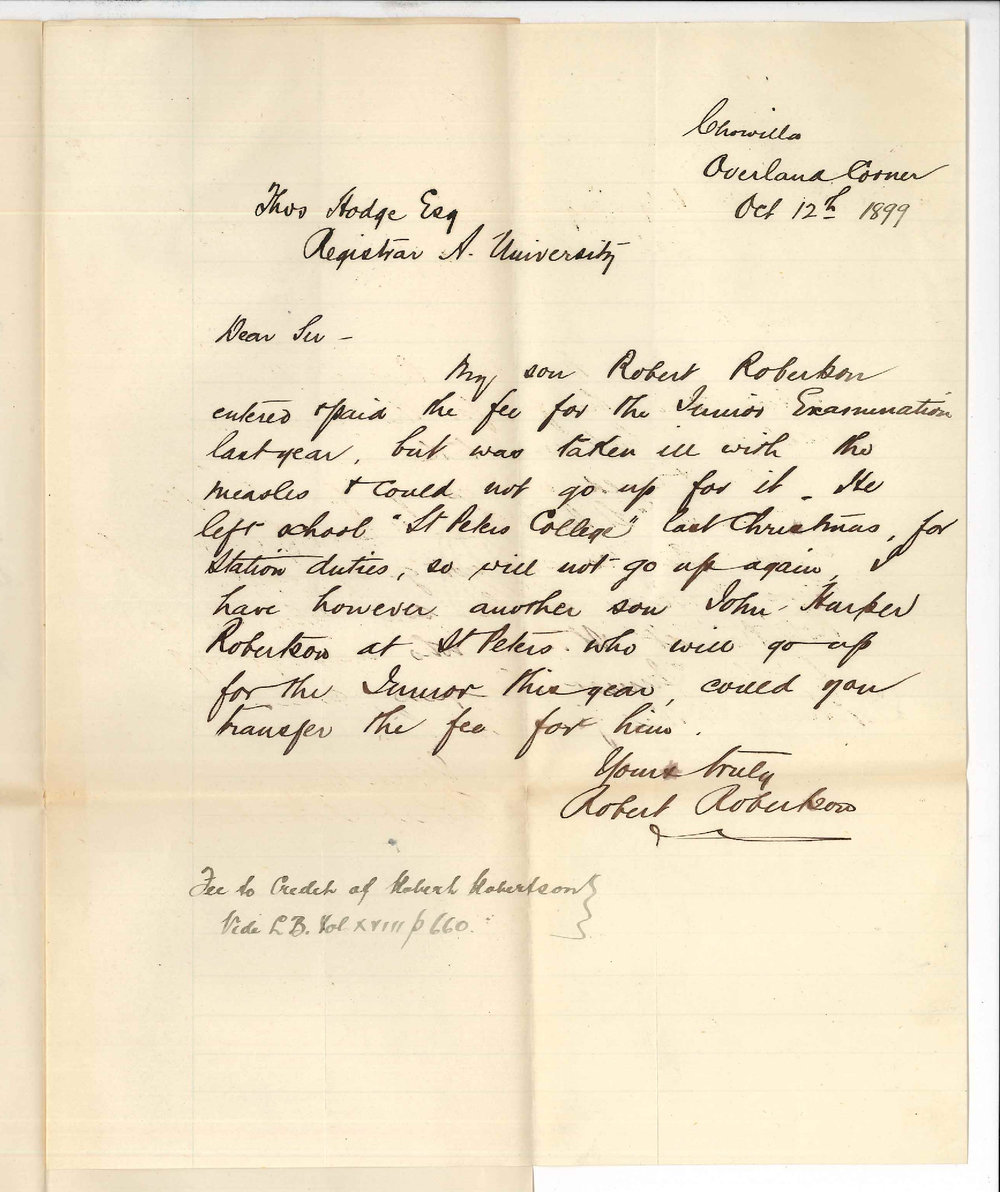 Chowilla
Overland Corner
Oct 12th 1899
Thos Hodge Esq
Registrar A. University
Dear Sir -
My son Robert Robertson
entered & paid the fee for the Junior Examination
last year, but was taken ill with the
measles & could not go up for it - He
left school "St Peters College" last Christmas, for
Station duties, so will not go up again, I
have however another son John Harper
Robertson at St Peters who will go up
for the Junior this year, could you
transfer the fee for him.
Yours truly
Robert Robertson
Fee to Credit of Robert Robertson }
Vide L.B. Vol XVIII p 660.